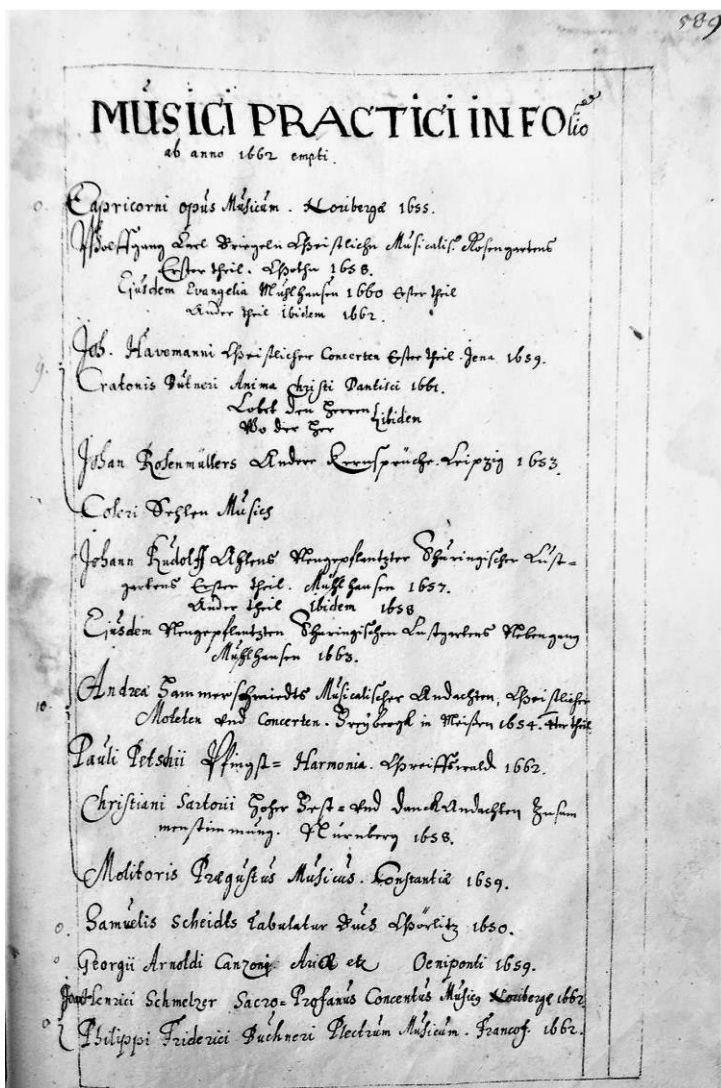 589
MUSICI PRACTICI IN FOlio
ab anno 1662 empti.
0. Capricorni opus Musicum. Noribergæ 1655.
Wolffgang Carl Briegeln Christliche Musicalis. Rosengartens
Erster theil. Gotha 1658.
Ejusdem Evangelia Mühlhausen 1660 Erster theil
Ander theil ibidem 1662.
Joh. Havemanni Christlicher Concerten Erster theil. Jena 1659.
9. Cratonis Bütneri Anima Christi Dantisci 1661.
Lobet den Herren
Wo der Herr } ibidem
Johan Rosenmüllers Andere Kernsprüche. Leipzig 1653.
Coleri Sehlen Musich
Johann Rudolff Ahlens Neugepflantzter Thüringischer Lust=
gartens Erster theil. Mühlhausen 1657.
Ander theil ibidem 1658
Ejusdem Neugepflantzten Thüringischen Lustgartens Nebengang
Mühlhausen 1663.
10. Andreæ Hammerschmiedts Musicalischer Andachten, Christlicher
Moteten und Concerten. Freybergk in Meißen 1654. 4ter theil
Pauli Petschii Pfingst= Harmonia. Greiffswald 1662.
Christiani Sartorii Hoher Fest= und danck Andachten Zusam
menstimmung. Nürnberg 1658.
Molitoris Prægustus Musicus. Constantiæ 1659.
0. Samuelis Scheidts tabulatur Buch Görlitz 1650.
0 Georgii Arnoldi Canzoni Ariæ etc Oeniponti 1659.
Joan Henrici Schmelzer Sacro=Profanus Concentus Musicus Noribergæ 1662
0 Philippi Friderici Buchneri Plectrum Musicum. Francof. 1662.